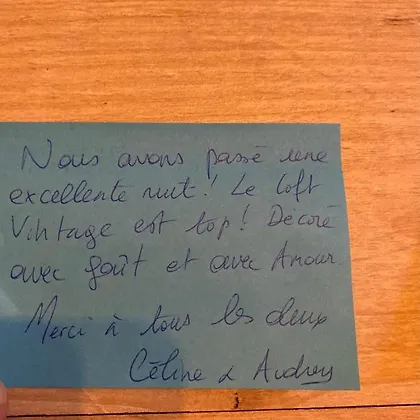 Nous avons passé une
excellente nuit! Le loft
Vintage est top! Décoré
avec goût et avec Amour
Merci à tous les deux
Céline & Audrey